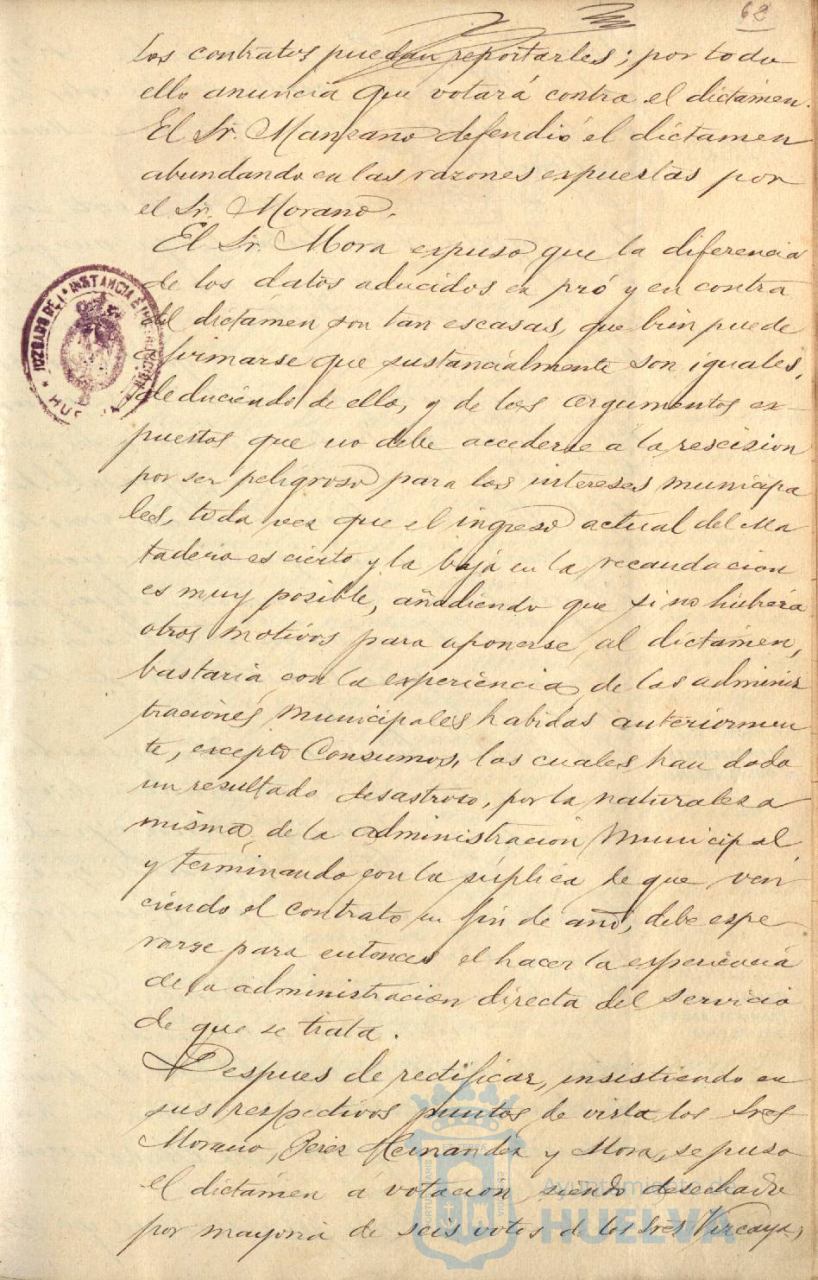 62
los contratos puedan reportarles; por todo
ello anuncia que votará contra el dictámen.
El Sr. Manzano defendió el dictamen
abundando en las razones expuestas por
el Sr. Morano.
El Sr. Mora expuso que la diferencia
de los datos aducidos en pró y en contra
del dictámen son tan escasas, que bien puede
afirmarse que sustancialmente son iguales,
deduciendo de ello, y de los argumentos ex-
puestos que no debe accederse á la rescision
por ser peligroso para los intereses municipa
les, toda vez que el ingreso actual del Ma
tadero es cierto y la baja en la recaudacion
es muy posible, añadiendo que si no hubiera
otros motivos para oponerse al dictámen,
bastaria con la experiencia de las adminis
traciones municipales habidas anteriormen
te, excepto Consumos, las cuales han dado
un resultado desastroso, por la naturaleza
misma de la administración Municipal
y terminando con la súplica de que ven
ciendo el contrato en fin de año, debe espe
rarse para entonces el hacer la experiencia
de la administracion directa del servicio
de que se trata.
Despues de rectificar, insistiendo en
sus respectivos puntos de vista, los Sres
Morano, Perez Hernandez y Mora, se puso
el dictámen á votacion, siendo desechado
por mayoria de seis votos de los Sres Vizcaya,
JUZGADO DE 1ª INSTANCIA E INSTRUCCIÓN
HUELVA
Ayuntamiento de
HUELVA